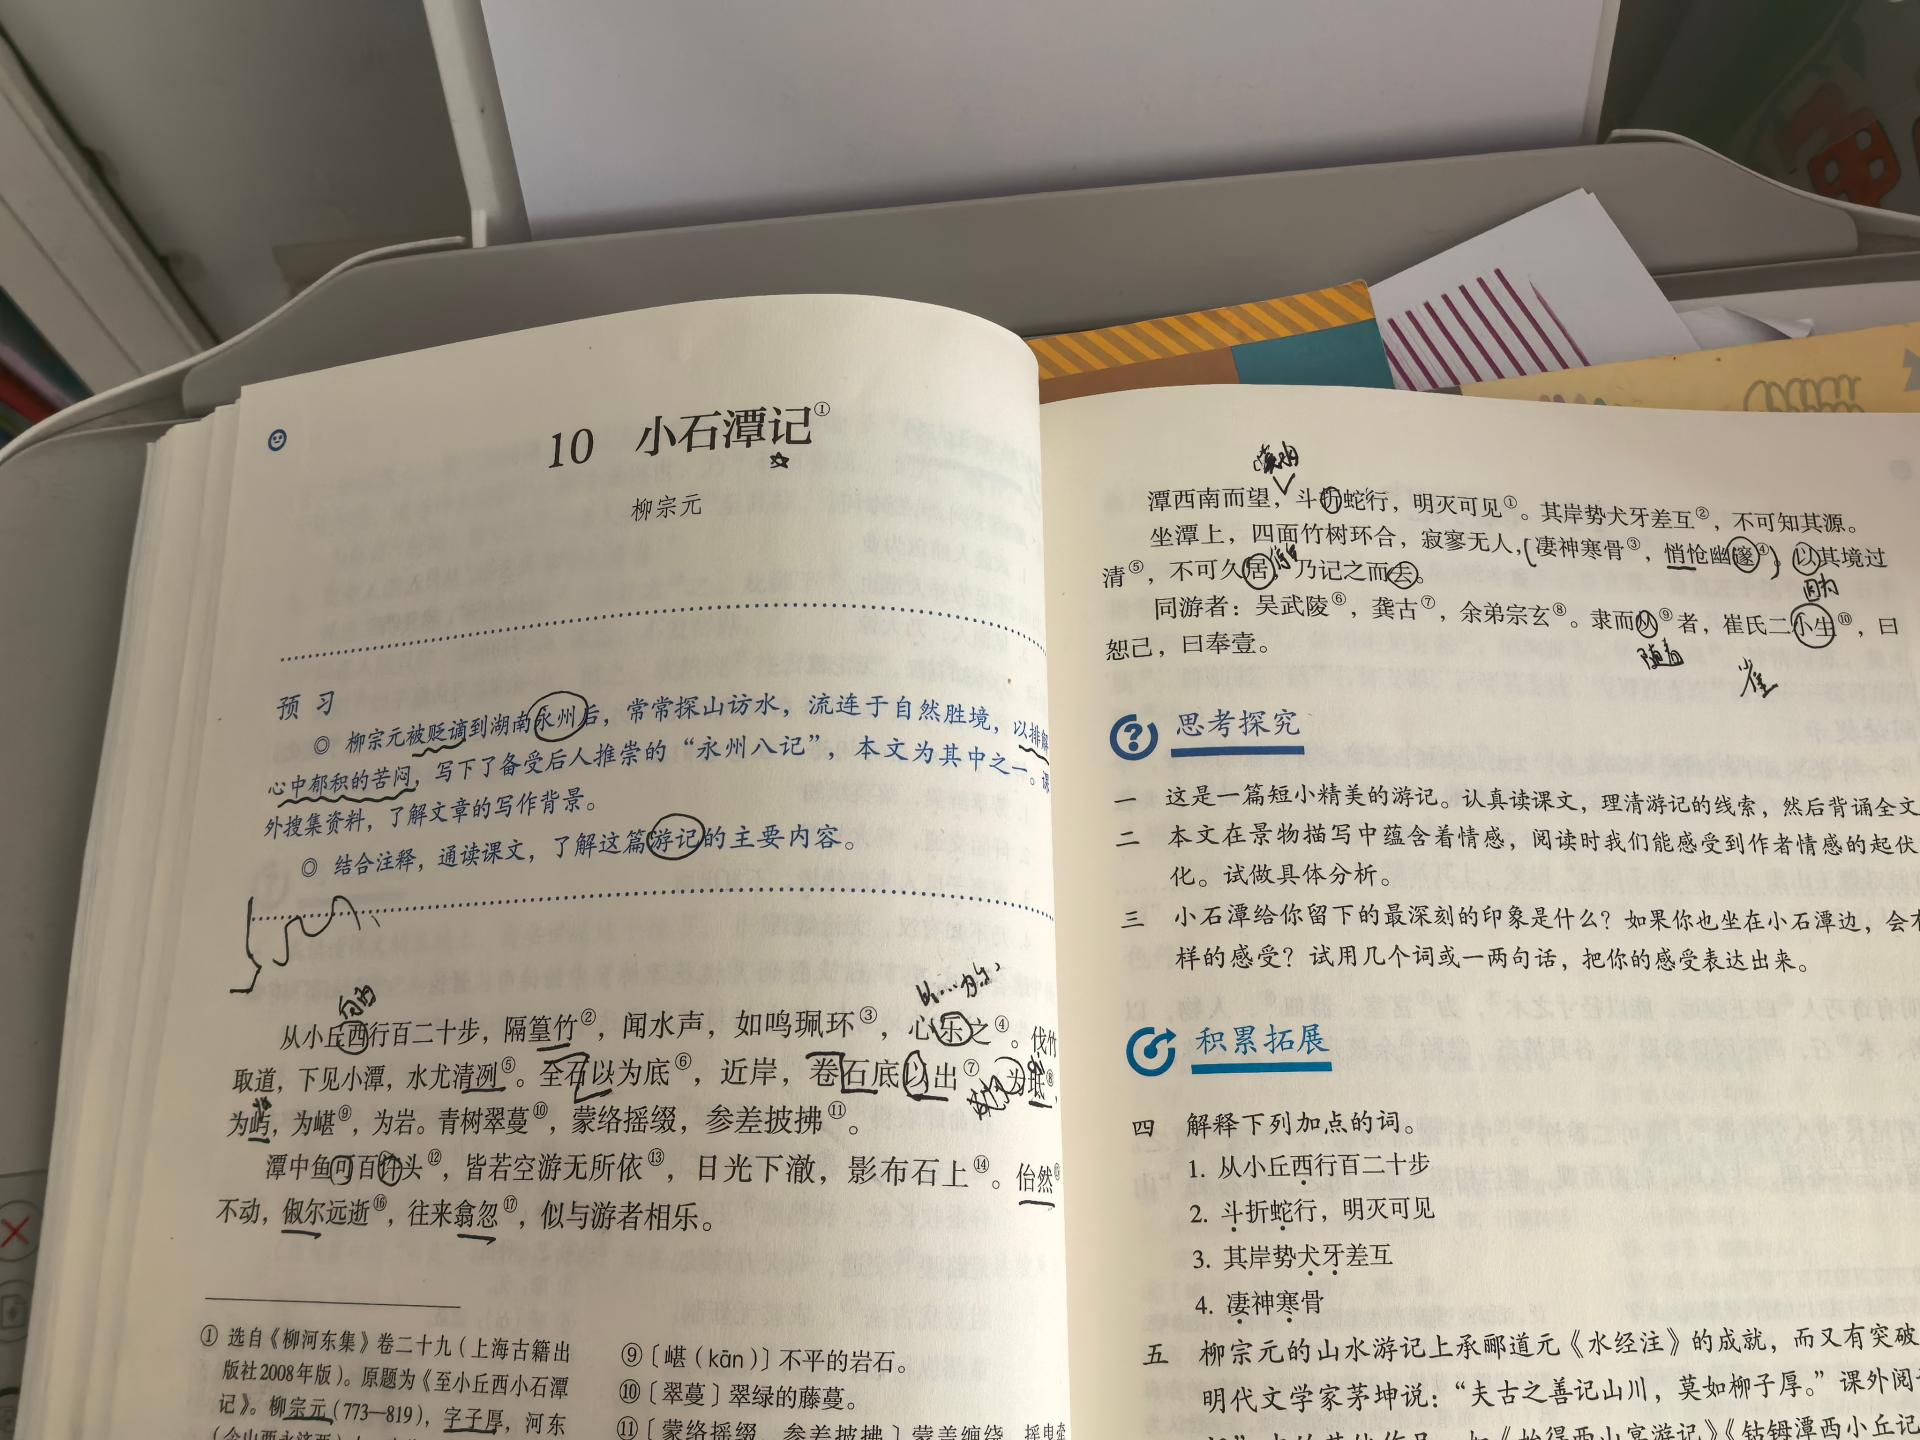 10 小石潭记①
柳宗元
预 习
◎ 柳宗元被贬谪到湖南永州后，常常探山访水，流连于自然胜境，以排解
心中郁积的苦闷，写下了备受后人推崇的“永州八记”，本文为其中之一。课
外搜集资料，了解文章的写作背景。
◎ 结合注释，通读课文，了解这篇游记的主要内容。
从小丘西行百二十步，隔篁竹②，闻水声，如鸣珮环③，心乐之④。伐竹
取道，下见小潭，水尤清冽⑤。全石以为底⑥，近岸，卷石底以出⑦，为坻⑧，
为屿，为嵁⑨，为岩。青树翠蔓⑩，蒙络摇缀，参差披拂⑪。
潭中鱼可百许头⑫，皆若空游无所依⑬，日光下澈，影布石上⑭。佁然⑮
不动，俶尔远逝⑯，往来翕忽⑰，似与游者相乐。
① 选自《柳河东集》卷二十九（上海古籍出
版社2008年版）。原题为《至小丘西小石潭
记》。柳宗元（773—819），字子厚，河东
⑨〔嵁（kān）〕不平的岩石。
⑩〔翠蔓〕翠绿的藤蔓。
⑪〔蒙络摇缀，参差披拂〕蒙盖缠绕，摇曳牵
潭西南而望，斗折蛇行，明灭可见①。其岸势犬牙差互②，不可知其源。
坐潭上，四面竹树环合，寂寥无人，凄神寒骨③，悄怆幽邃④。以其境过
因为
清⑤，不可久居，乃记之而去。
同游者：吴武陵⑥，龚古⑦，余弟宗玄⑧。隶而从⑨者，崔氏二小生⑩，曰
恕己，曰奉壹。
随着
崔
思考探究
一 这是一篇短小精美的游记。认真读课文，理清游记的线索，然后背诵全文
二 本文在景物描写中蕴含着情感，阅读时我们能感受到作者情感的起伏
化。试做具体分析。
三 小石潭给你留下的最深刻的印象是什么？如果你也坐在小石潭边，会有
样的感受？试用几个词或一两句话，把你的感受表达出来。
积累拓展
四 解释下列加点的词。
1. 从小丘西行百二十步
2. 斗折蛇行，明灭可见
3. 其岸势犬牙差互
4. 凄神寒骨
五 柳宗元的山水游记上承郦道元《水经注》的成就，而又有突破
明代文学家茅坤说：“夫古之善记山川，莫如柳子厚。”课外阅
《始得西山宴游记》《钴鉧潭西小丘记